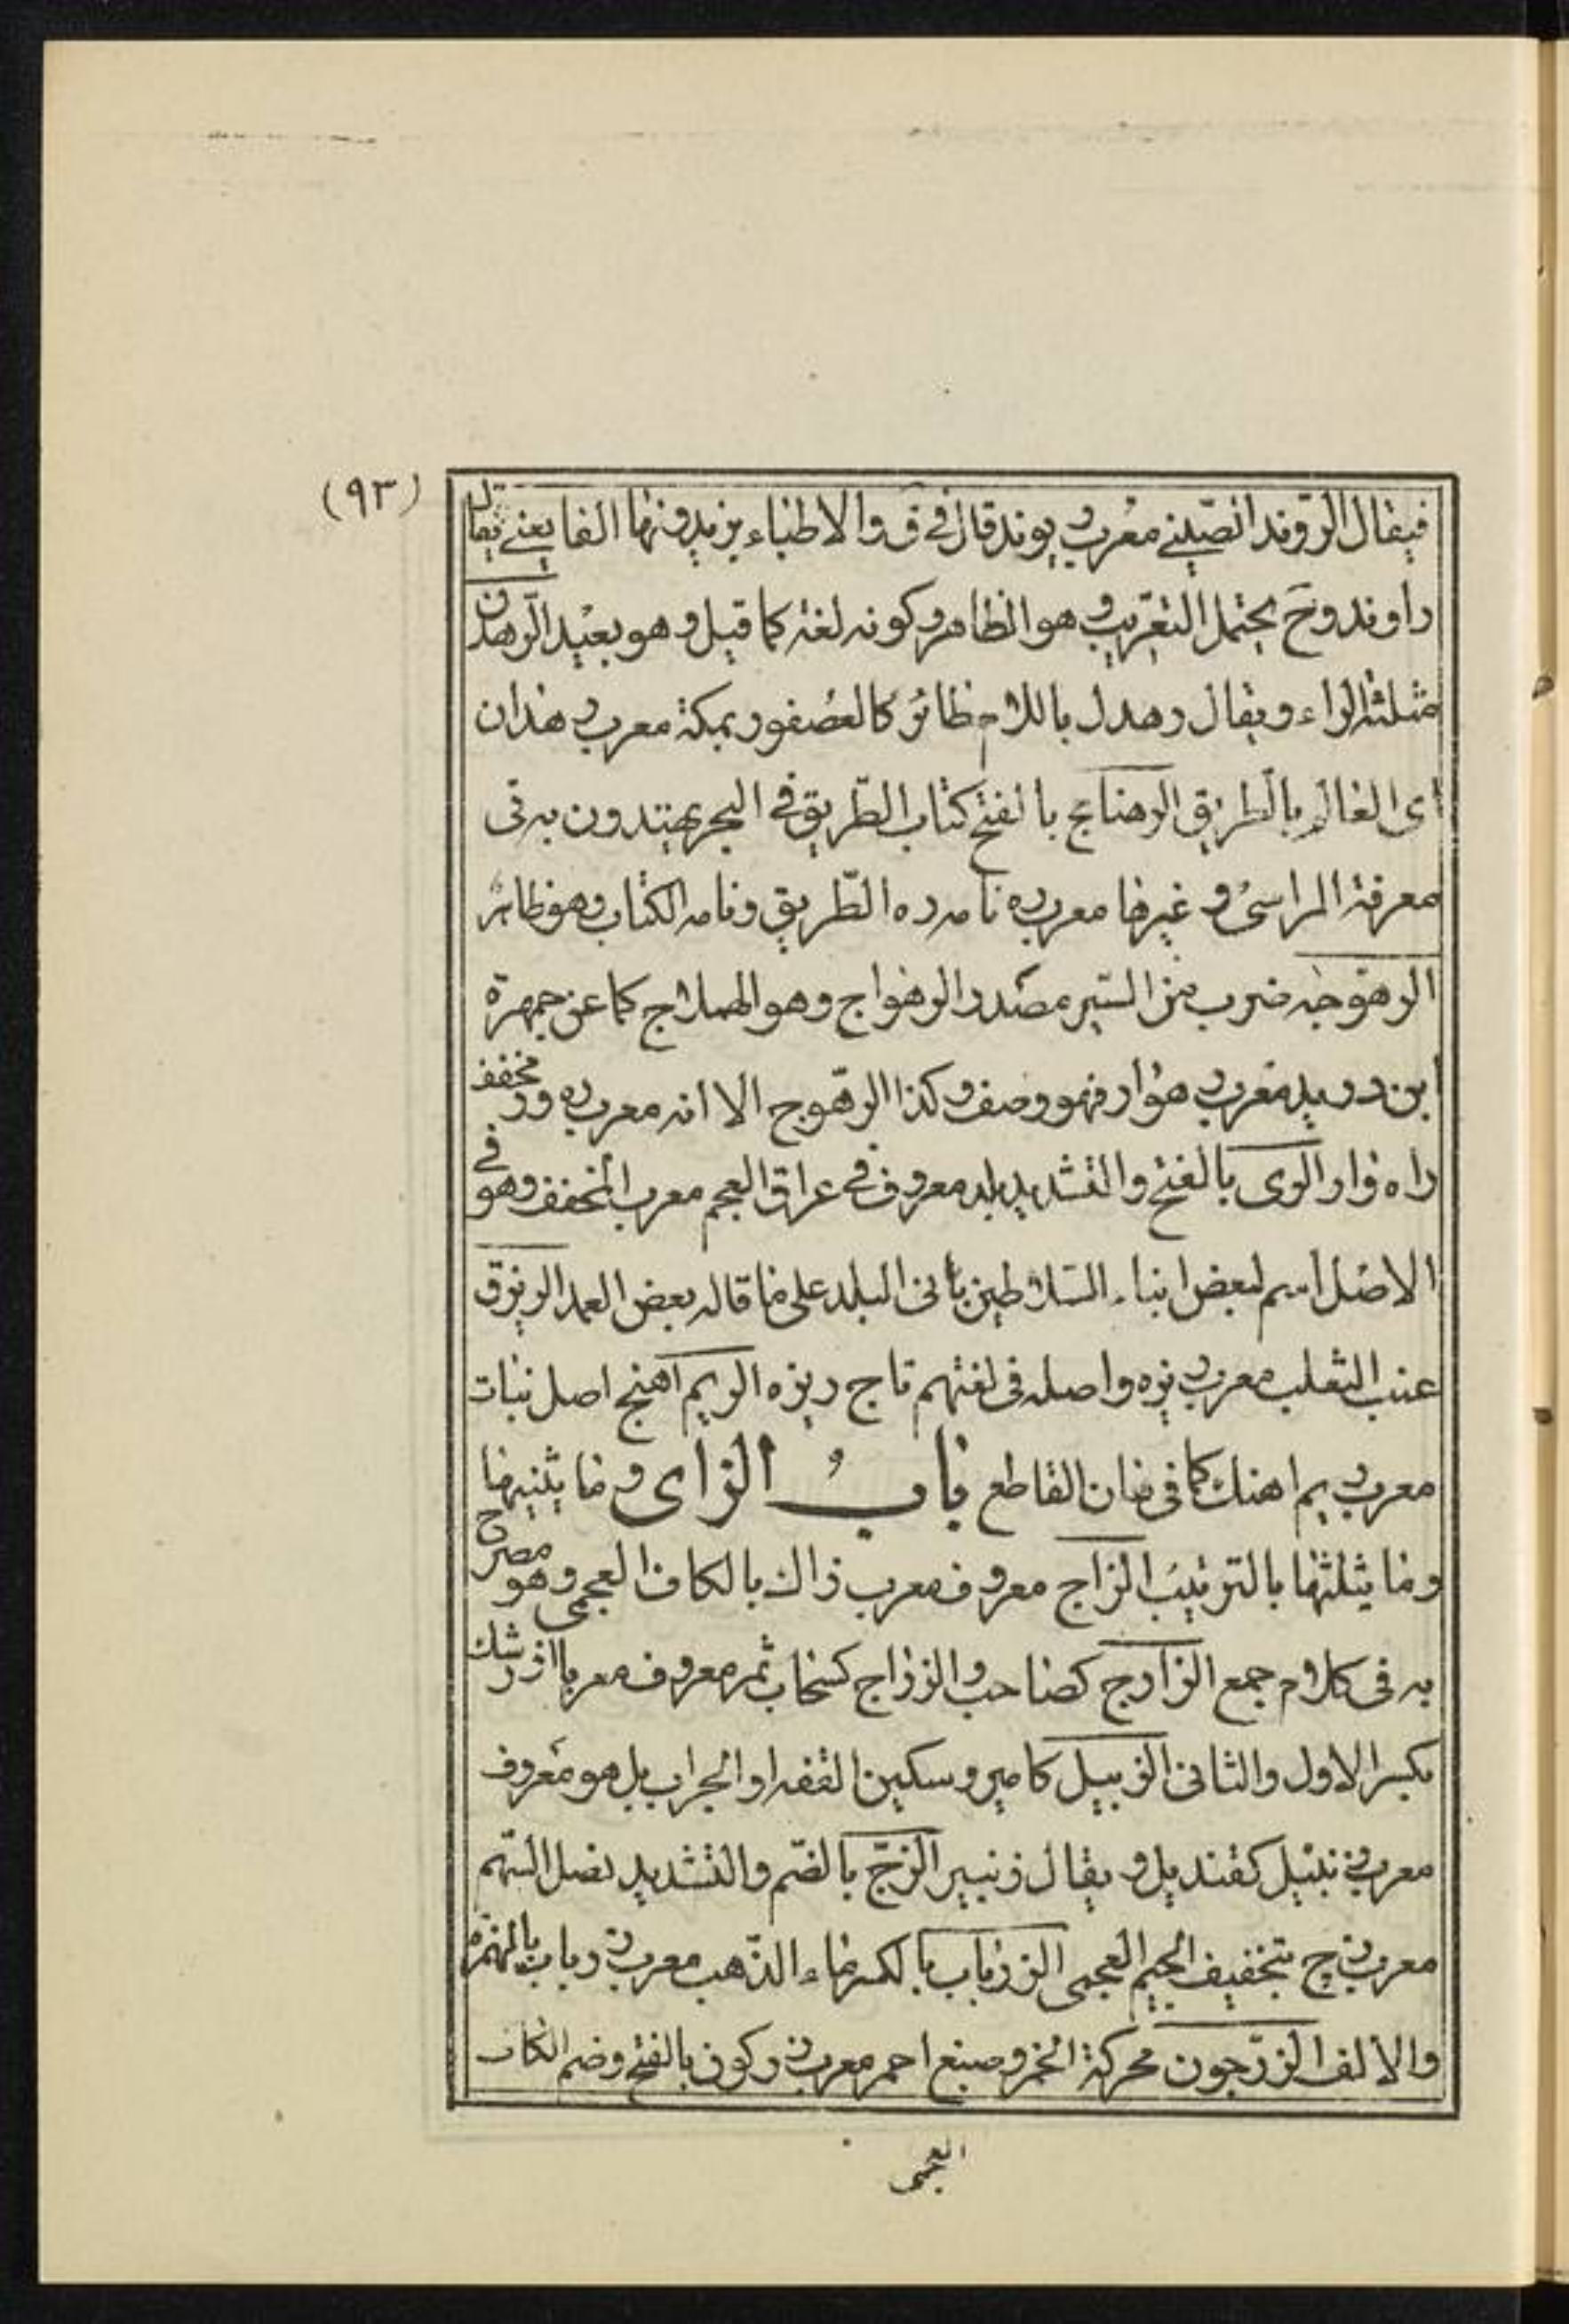 (٩٣)
فيقال الرّوند الصّيني معرب ريوند قال في ق والاطباء يزيدونها الفا يعني يقال
راوند وح يحتمل التعريب وهو الظاهر وكونه لغة كما قيل وهو بعيد الرهدن
مثلثة الراء ويقال رهدل باللام طائر كالعصفور بمكة معرب رهدان
اى العالم بالطريق الرهنامج بالفتح كتاب الطّريق في البحر يهتدون به فى
معرفة المراسى وغيرها معرب ره نامه ره الطّريق ونامه الكتاب وهو ظاهر
الرهوجة ضرب من السّير مصدر الرهواج وهو الهملاج كما عن جمهرة
ابن دريد معرب رهوار فهو وصف وكذا الرهوج الا انه معرب رهور مخفف
راه وار الرى بالفتح والتشديد بلد معروف في عراق العجم معرب المخفف وهو في
الاصل اسم لبعض ابناء السّلاطين بانى البلد على ما قاله بعض العمد الريزق
عنب الثعلب معرب ريزه واصله فى لغتهم تاج ريزه الريم آهنج اصل نبات
معرب ريم اهنك كما فى القاطع باب الزاى وما يثنيها
وما يثلثها بالترتيب الزاج معروف معرب زاك بالكاف العجمى وهو مصرح
به فى كلام جمع الزارج كصاحب والزراج كسحاب ثمر معروف معربا زرشك
بكسر الاول والثانى الزبيل كامير وسكين القفه او الجراب بل هو معروف
معرب زنبيل كقنديل ويقال زنبير الزجّ بالضّم والتشديد نصل السّهم
معرب زج بتخفيف الجيم العجمى الزرياب بالكسر ماء الذّهب معرب زرباب بالهمزة
والالف الزرّجون محركة الخمر وصبغ احمر معرب زركون بالفتح وضم الكاف
العجمى